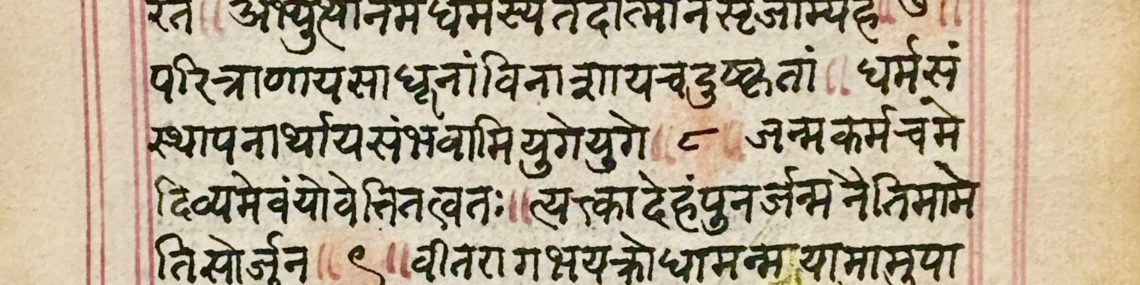 रत ॥ अभ्युत्थानमधर्मस्य तदात्मानं सृजाम्यहं ७ ॥
परित्राणायसाधूनांविनाशायचदुष्कृतां ॥ धर्मसं
स्थापनार्थायसंभवामियुगेयुगे ॥ ८ ॥ जन्मकर्मचमे
दिव्यमेवंयोवेत्तितत्वतः ॥ त्यक्त्कादेहंपुनर्जन्मनैतिमामे
तिसोर्जुन ॥ ९ ॥ वीतरागभयक्रोधामन्मयामामुपा